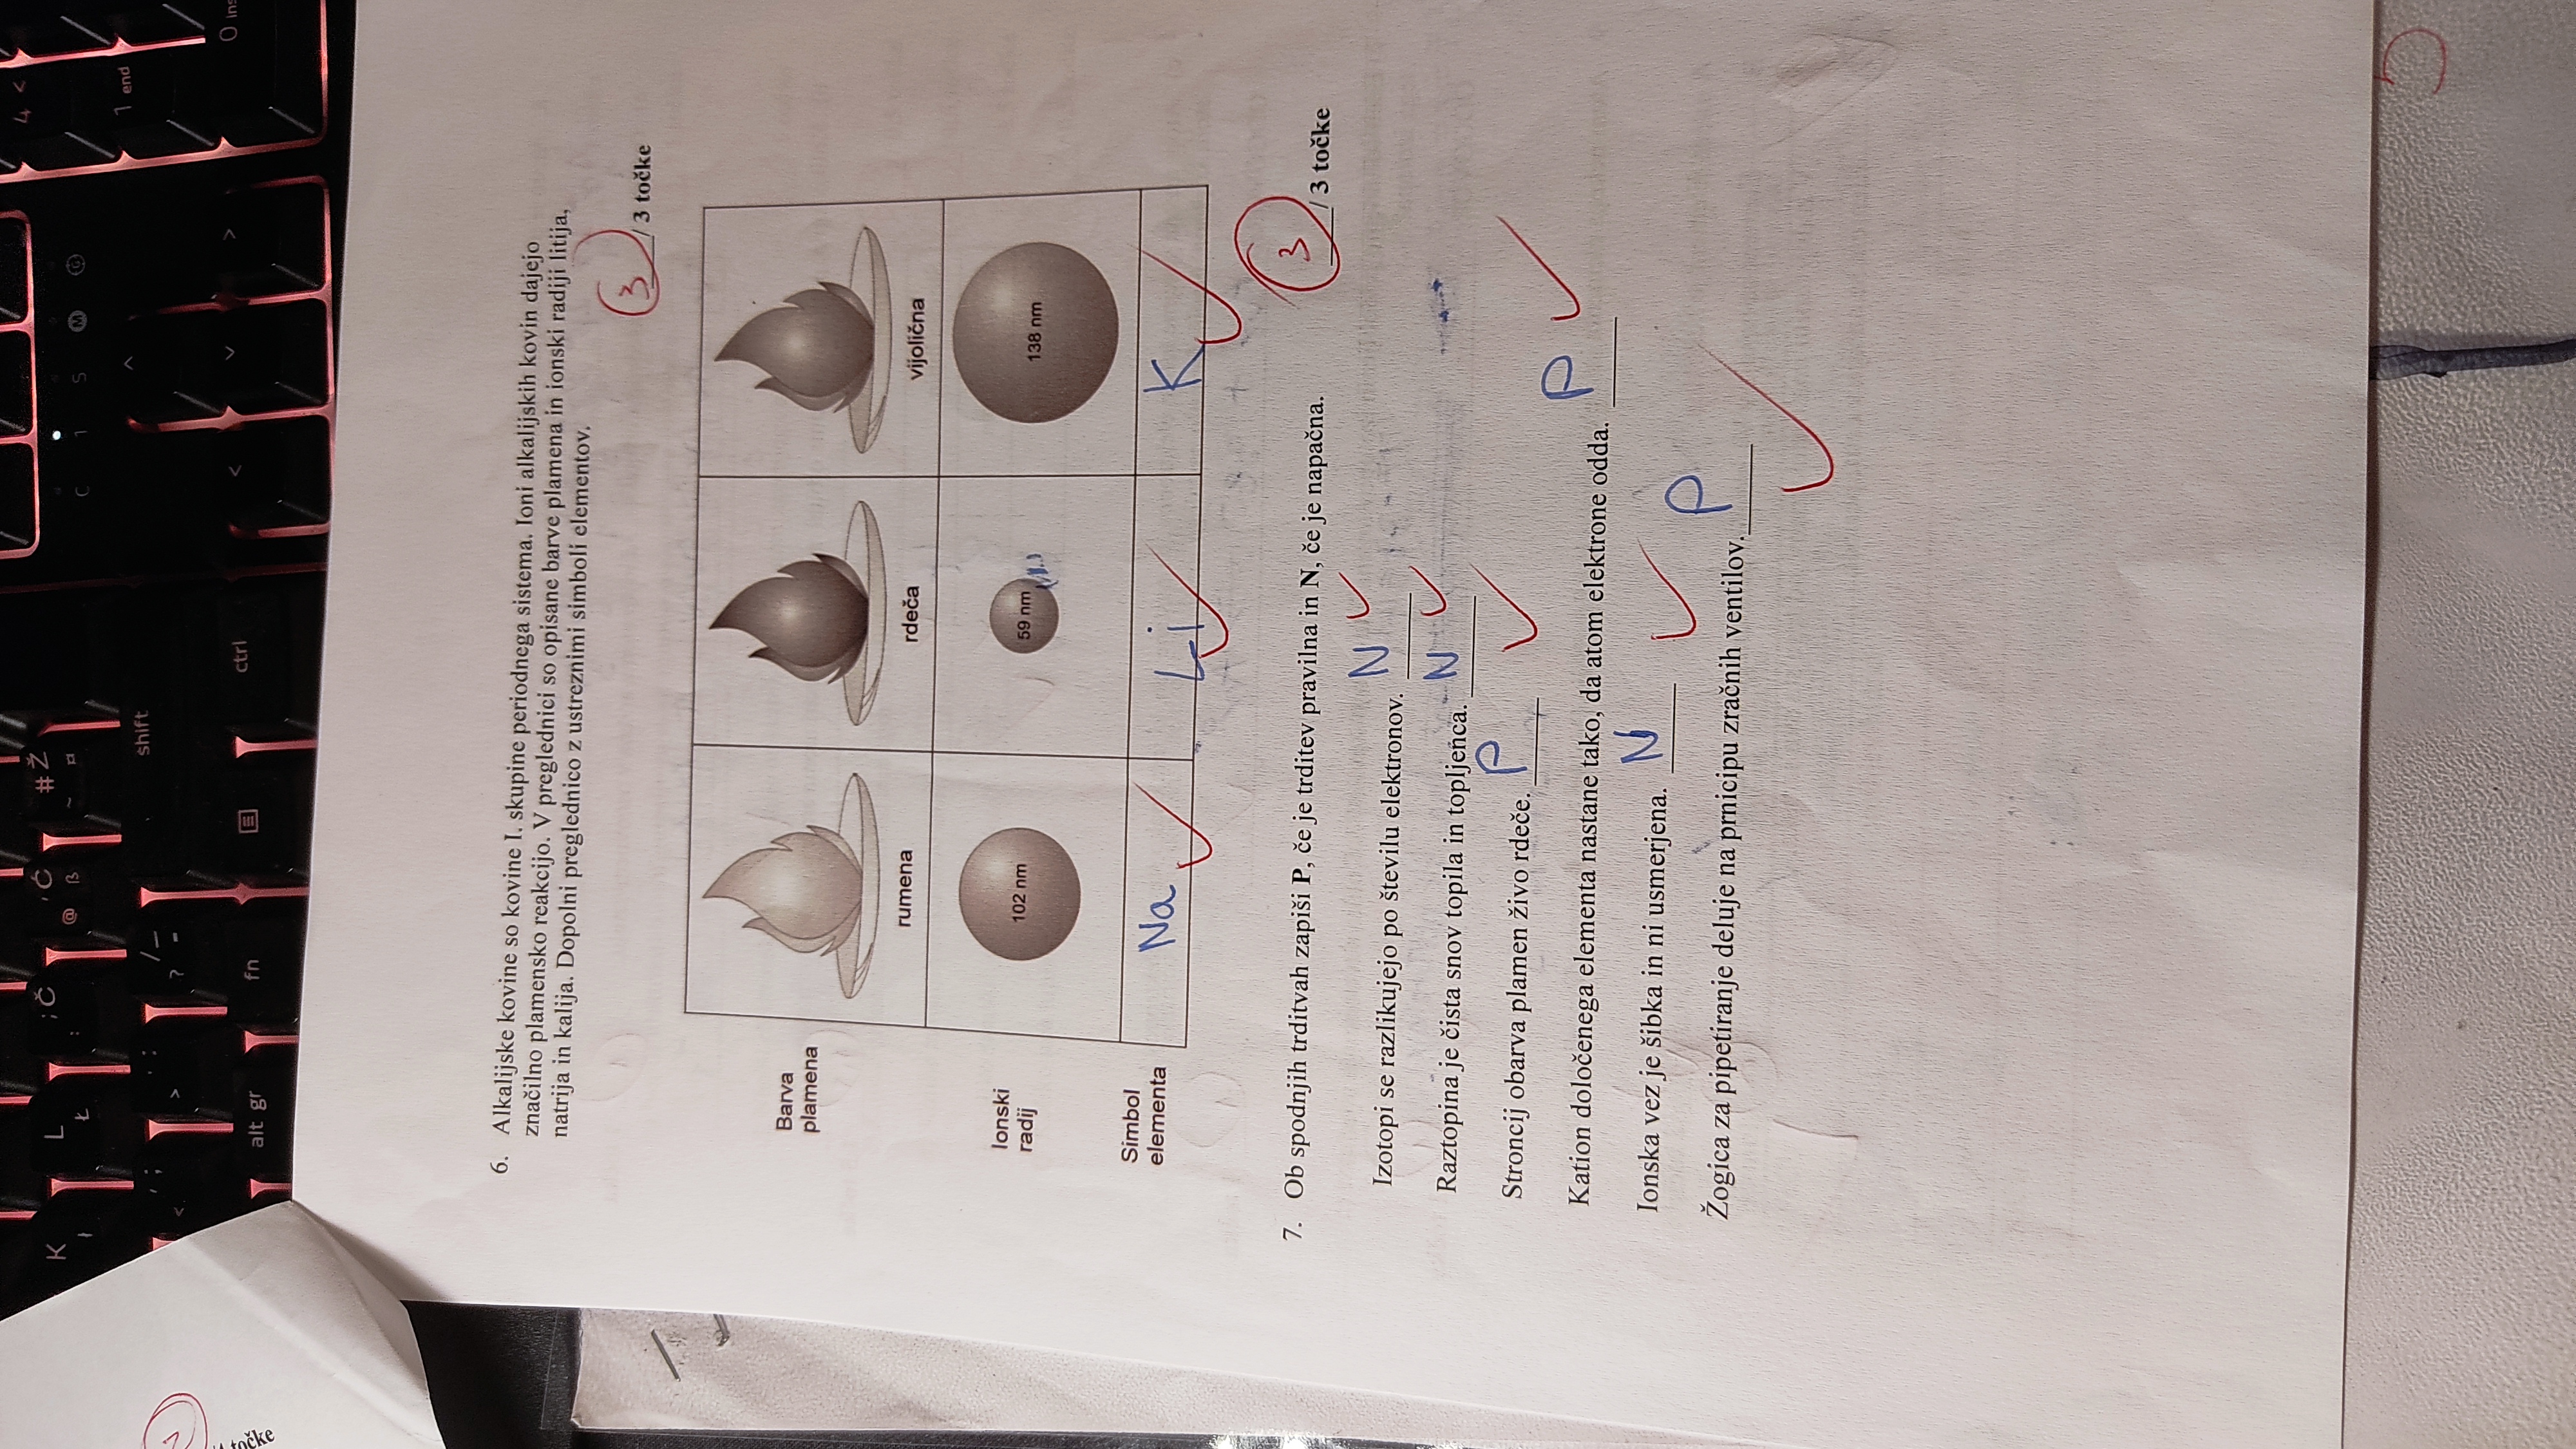 K
L
Ł
; Č
:
' Ć
@ ß
# Ž
~ ¤
C 1 S M G
4 <
1 end
, ;
<
. :
>
/ _
? -
shift
alt gr
fn
ctrl
< ^ v >
0 ins
točke
6. Alkalijske kovine so kovine I. skupine periodnega sistema. Ioni alkalijskih kovin dajejo
značilno plamensko reakcijo. V preglednici so opisane barve plamena in ionski radiji litija,
natrija in kalija. Dopolni preglednico z ustreznimi simboli elementov.
3 / 3 točke
Barva
plamena
rumena rdeča vijolična
Ionski
radij
102 nm 59 nm 138 nm
Simbol
elementa
Na Li K
7. Ob spodnjih trditvah zapiši P, če je trditev pravilna in N, če je napačna.
3 / 3 točke
Izotopi se razlikujejo po številu elektronov. N
Raztopina je čista snov topila in topljenca. N
Stroncij obarva plamen živo rdeče. P
Kation določenega elementa nastane tako, da atom elektrone odda. P
Ionska vez je šibka in ni usmerjena. N
Žogica za pipetiranje deluje na prnicipu zračnih ventilov. P